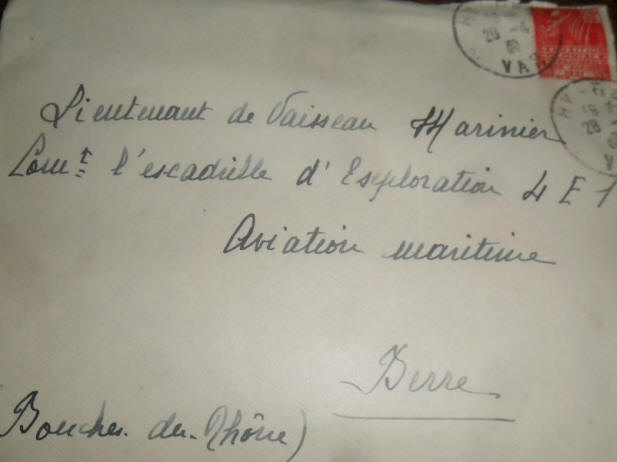 Lieutenant de Vaisseau Marinier
Comt l'escadrille d'Exploration 4 E 1
Aviation maritime
Berre
Bouches-du-Rhône)